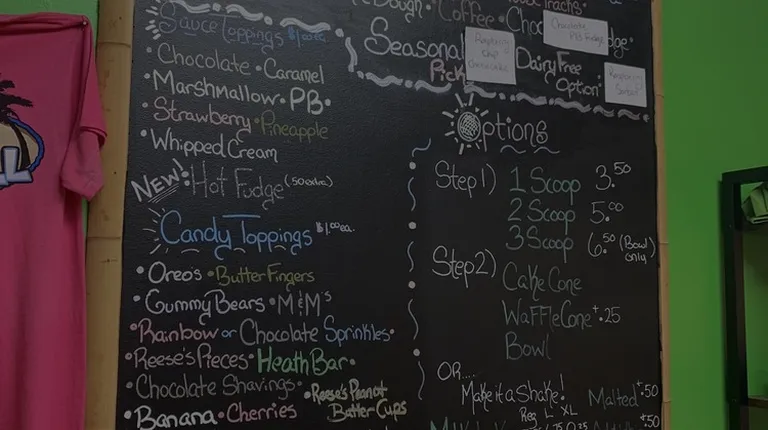 Dough · Coffee · Choc
Seasonal
Pick
Chocolate
PB Fudge
dge·
Dairy Free
Option·
Raspberry
Sauce Toppings $1.00 ea.
·Chocolate·Caramel
·Marshmallow·PB·
·Strawberry·Pineapple
·Whipped Cream
NEW! Hot Fudge (50 extra)
Candy Toppings $1.00 ea.
·Oreos·Butterfingers
·Gummy Bears·M&M's
·Rainbow or Chocolate Sprinkles·
·Reese's Pieces·Heath Bar·
·Chocolate Shavings·Reese's Peanut
Butter Cups
·Banana·Cherries
Options
Step 1) 1 Scoop 3.50
2 Scoop 5.00
3 Scoop 6.50 (Bowl only)
Step 2) Cake Cone
Waffle Cone +.25
Bowl
Or....
Make it a Shake! Malted +.50
Reg L XL
+.50